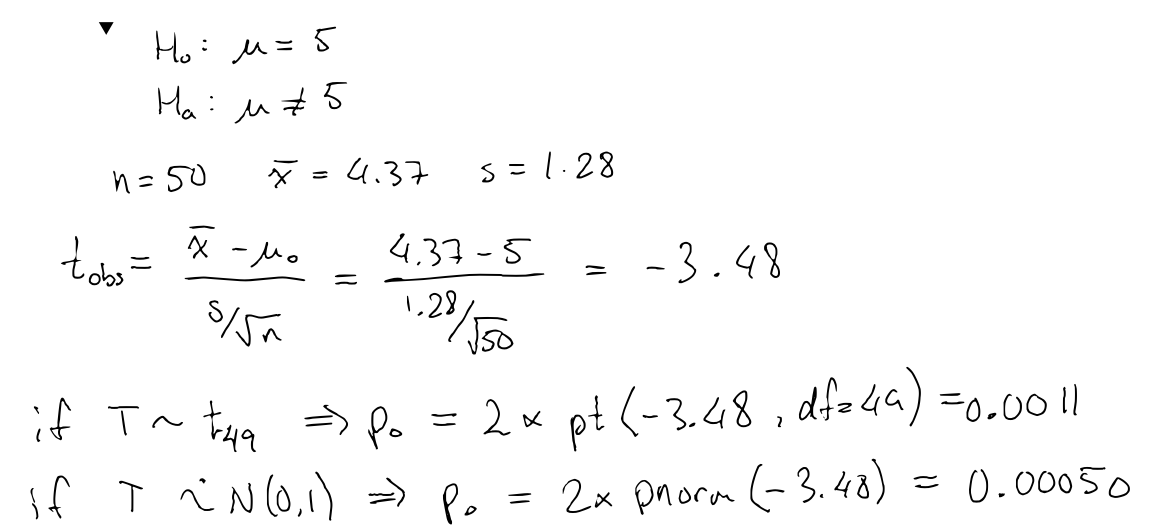 H₀: μ = 5
Hₐ: μ ≠ 5
n = 50 x̄ = 4.37 s = 1.28
t_obs = (x̄ - μ₀)/(s/√n) = (4.37 - 5)/(1.28/√50) = -3.48
if T ~ t₄₉ ⇒ p₀ = 2 × pt(-3.48, df=49) = 0.0011
if T ~̇ N(0,1) ⇒ p₀ = 2× pnorm(-3.48) = 0.00050